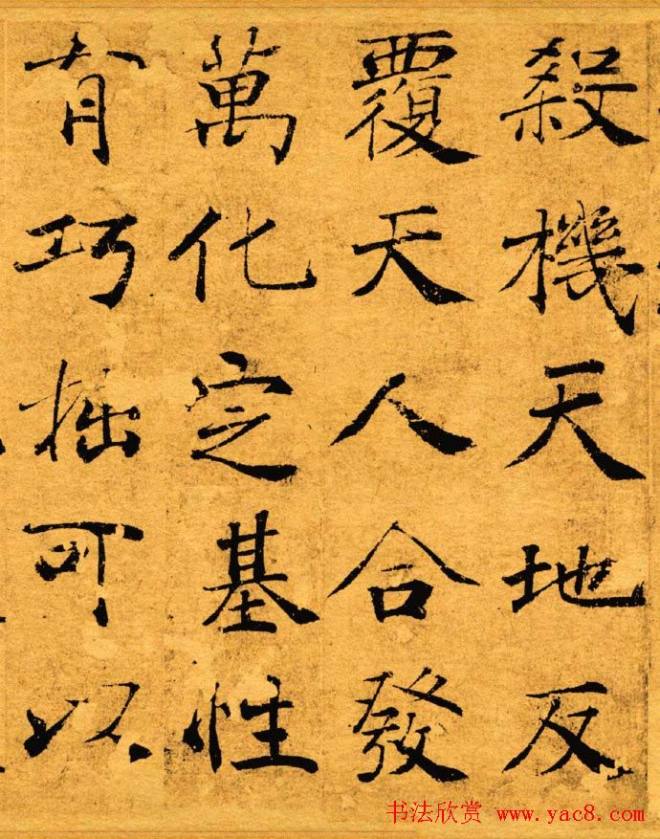 殺機天地反
覆天人合發
萬化定基性
有巧拙可以
书法欣赏 www.yac8.com